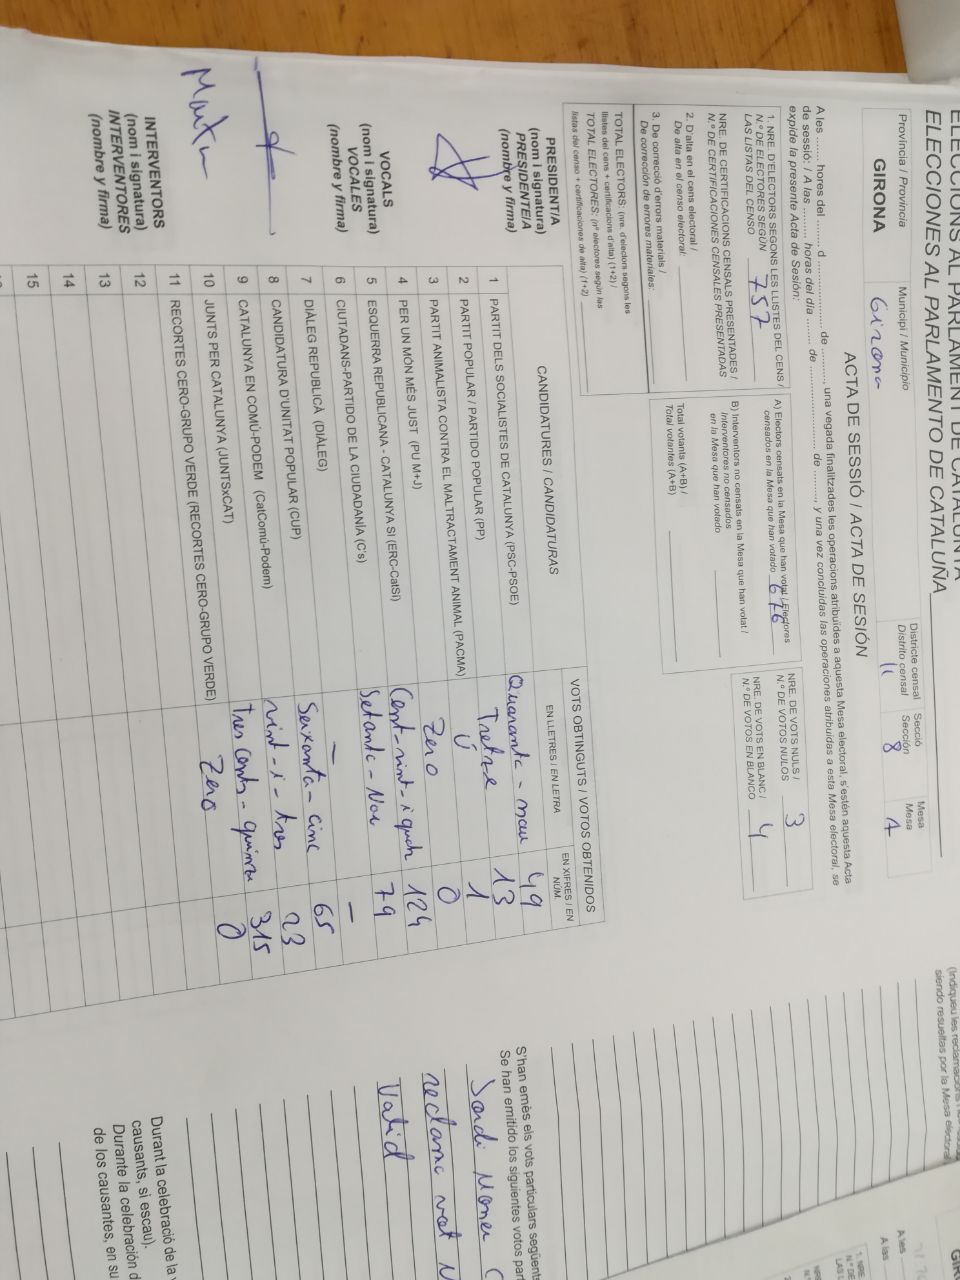 ELECCIONS AL PARLAMENT DE CATALUNYA
ELECCIONES AL PARLAMENTO DE CATALUÑA
Província / Provincia
GIRONA
Municipi / Municipio
Girona
Districte censal
Distrito censal
11
Secció
Sección
8
Mesa
Mesa
A
ACTA DE SESSIÓ / ACTA DE SESIÓN
A les ........ hores del ........ d .................... de ........., una vegada finalitzades les operacions atribuïdes a aquesta Mesa electoral, s'estén aquesta Acta
de sessió: / A las ......... horas del día ......... de .................... de ........., y una vez concluidas las operaciones atribuidas a esta Mesa electoral, se
expide la presente Acta de Sesión:
1. NRE. D'ELECTORS SEGONS LES LLISTES DEL CENS /
N.º DE ELECTORES SEGÚN
LAS LISTAS DEL CENSO 757
NRE. DE CERTIFICACIONS CENSALS PRESENTADES /
N.º DE CERTIFICACIONES CENSALES PRESENTADAS
2. D'alta en el cens electoral /
De alta en el censo electoral:
3. De correcció d'errors materials /
De corrección de errores materiales:
TOTAL ELECTORS: (nre. d'electors segons les
llistes del cens + certificacions d'alta) (1+2) /
TOTAL ELECTORES: (nº electores según las
listas del censo + certificaciones de alta) (1+2)
A) Electors censats en la Mesa que han votat / Electores
censados en la Mesa que han votado 676
B) Interventors no censats en la Mesa que han votat /
Interventores no censados
en la Mesa que han votado
Total votants (A+B) /
Total votantes (A+B)
NRE. DE VOTS NULS /
N.º DE VOTOS NULOS 3
NRE. DE VOTS EN BLANC /
N.º DE VOTOS EN BLANCO 4
PRESIDENT/A
(nom i signatura)
PRESIDENTE/A
(nombre y firma)
VOCALS
(nom i signatura)
VOCALES
(nombre y firma)
INTERVENTORS
(nom i signatura)
INTERVENTORES
(nombre y firma)
CANDIDATURES / CANDIDATURAS
VOTS OBTINGUTS / VOTOS OBTENIDOS
EN LLETRES / EN LETRA
EN XIFRES / EN NÚM.
1 PARTIT DELS SOCIALISTES DE CATALUNYA (PSC-PSOE) Quaranta-nou 49
2 PARTIT POPULAR / PARTIDO POPULAR (PP) Tretze 13
3 PARTIT ANIMALISTA CONTRA EL MALTRACTAMENT ANIMAL (PACMA) Ú 1
4 PER UN MÓN MÉS JUST (PU M+J) Zero 0
5 ESQUERRA REPUBLICANA - CATALUNYA SÍ (ERC-CatSí) Cent-vint-i-quatre 124
6 CIUTADANS-PARTIDO DE LA CIUDADANÍA (C's) Setanta-Nou 79
7 DIÀLEG REPUBLICÀ (DIÀLEG) — —
8 CANDIDATURA D'UNITAT POPULAR (CUP) Seixanta-cinc 65
9 CATALUNYA EN COMÚ-PODEM (CatComú-Podem) vint-i-tres 23
10 JUNTS PER CATALUNYA (JUNTSxCAT) Tres Cents-quinze 315
11 RECORTES CERO-GRUPO VERDE (RECORTES CERO-GRUPO VERDE) Zero 0
12
13
14
15
(Indiqueu les
siendo resueltas por la Mesa electoral
S'han emès els vots particulars següents
Se han emitido los siguientes votos
Jordi
reclama vot
Valid
Durant la celebració de la
causants, si escau).
Durante la celebración d
de los causantes, en su
A les
A las